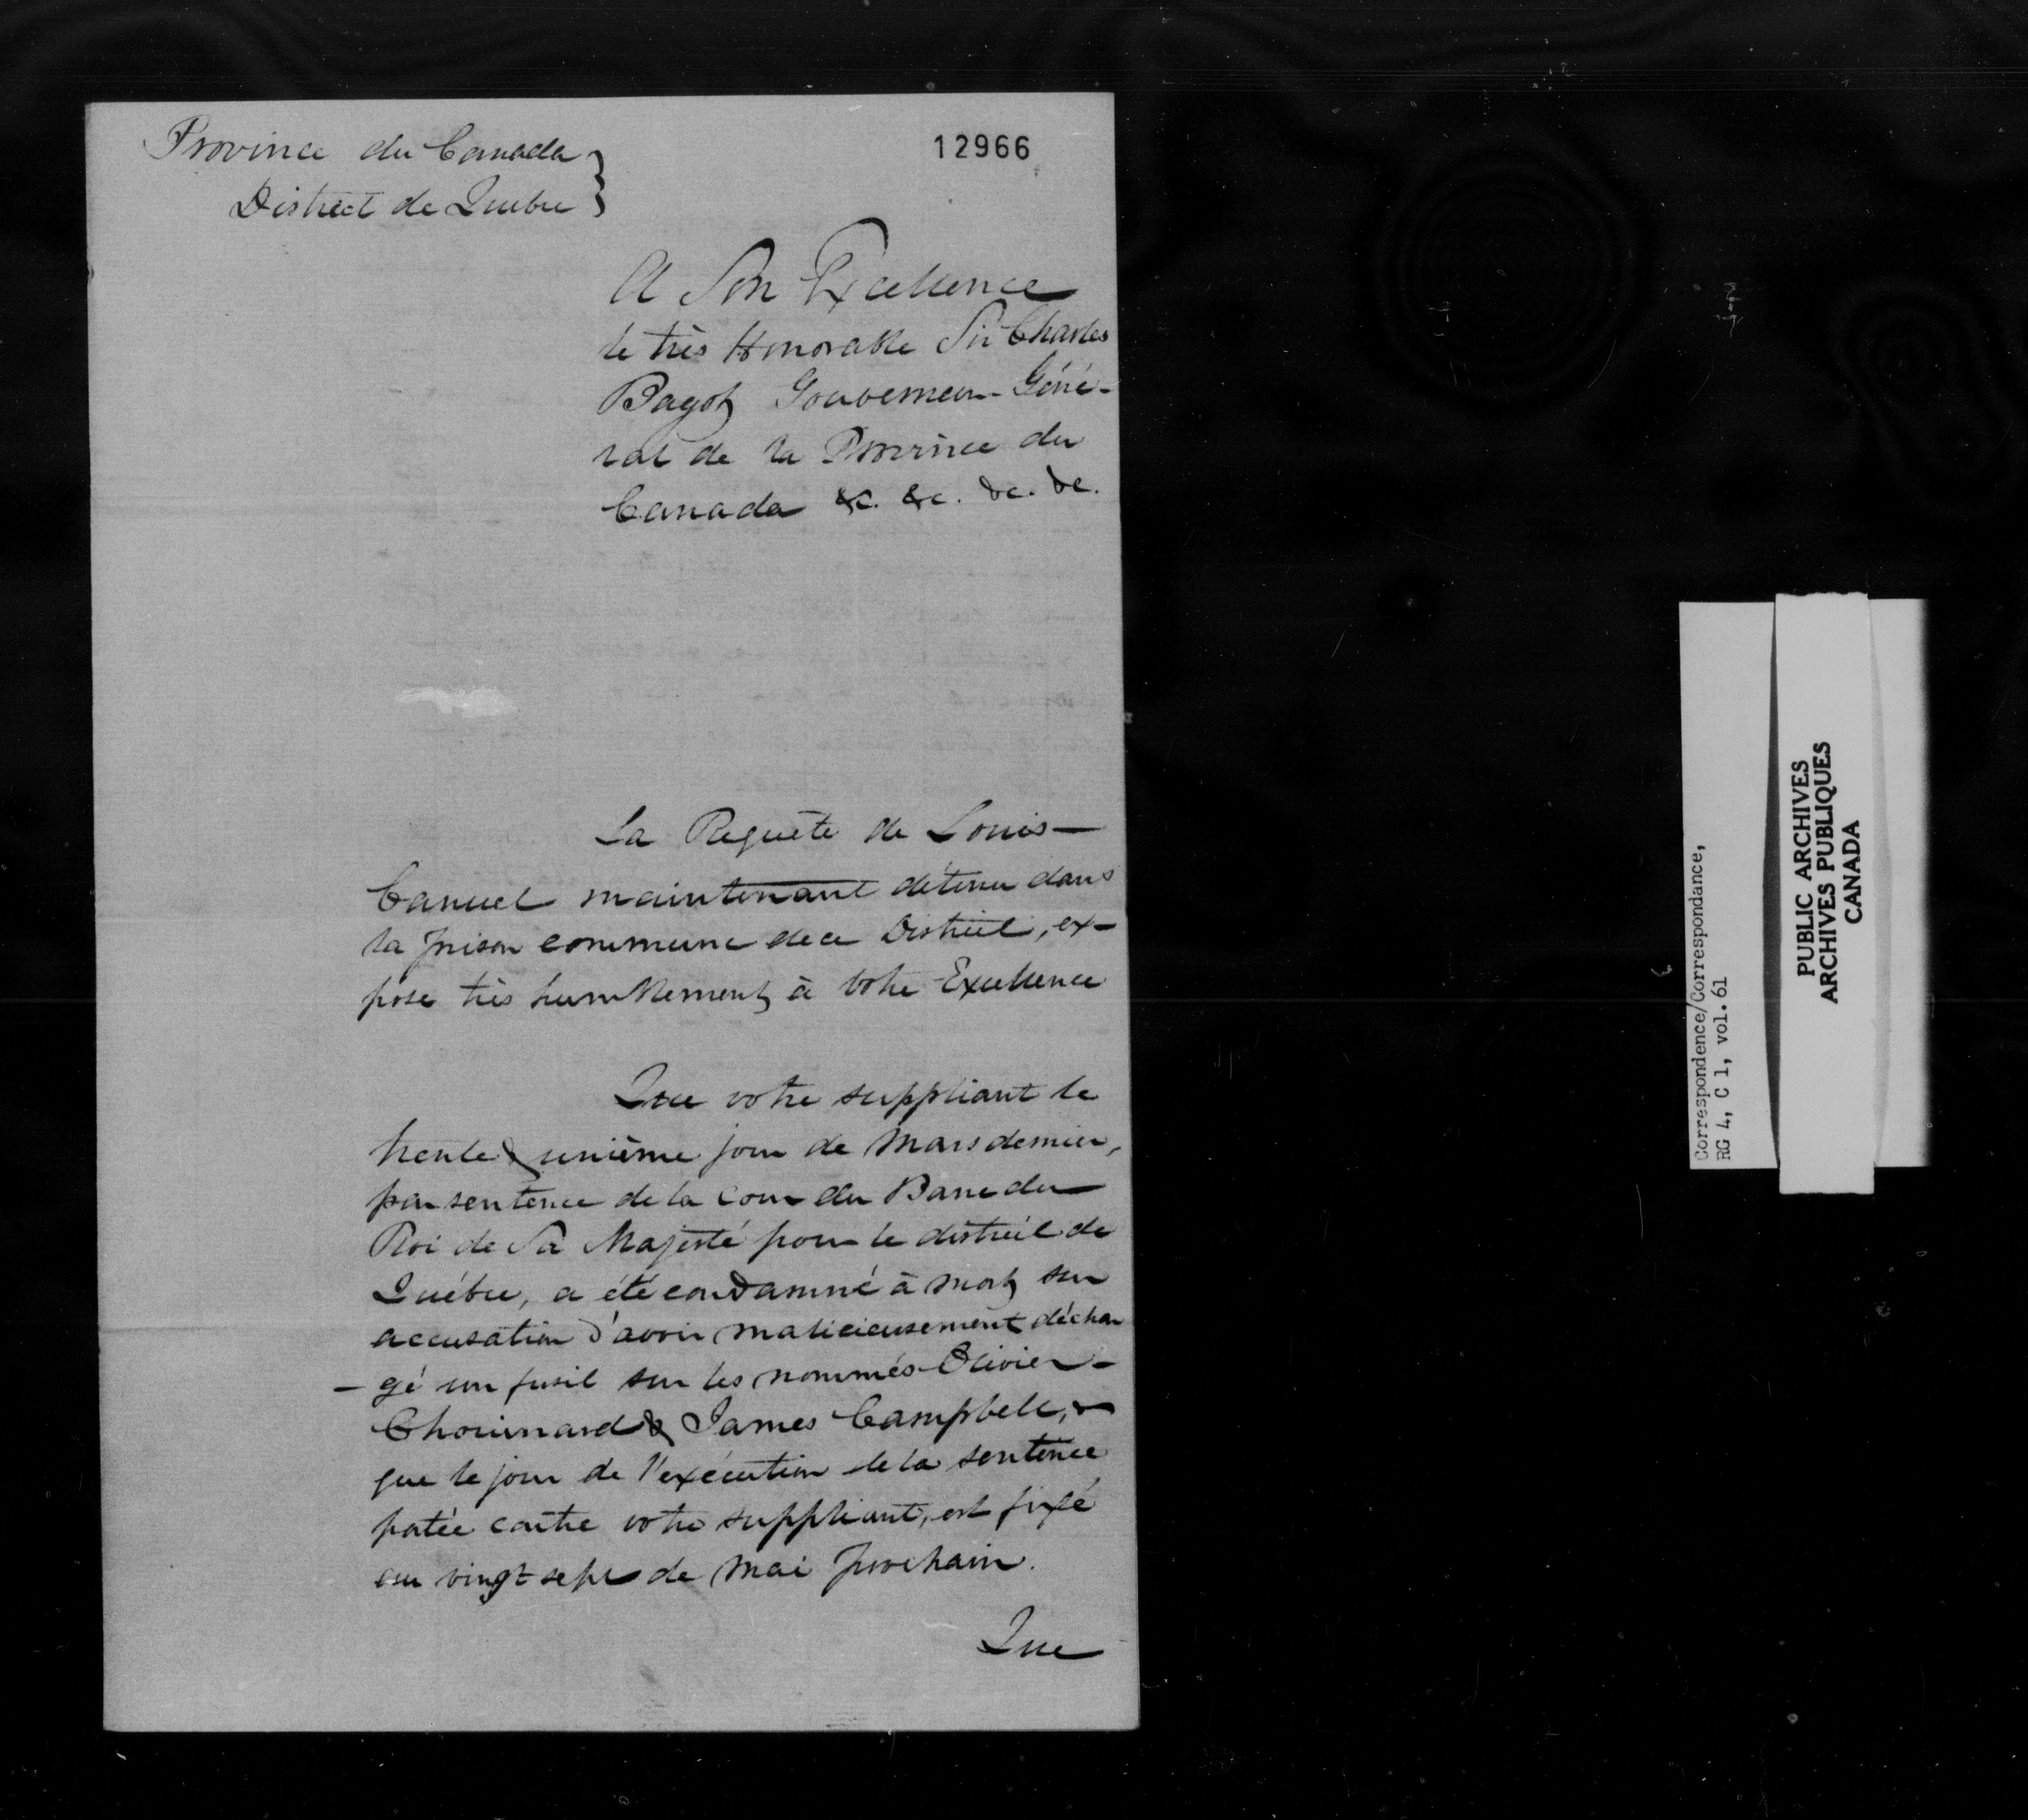 Province du Canada }
District de Québec }
12966
A Son Excellence
le très Honorable Sir Charles
Bagot Gouverneur Géné-
ral de la Province du
Canada &c. &c. &c. &c.
La Requête de Louis
Canuel maintenant détenu dans
la prison commune de ce District, ex-
pose très humblement à votre Excellence
Que votre suppliant le
trente & unième jour de Mars dernier,
par sentence de la Cour du Banc du
Roi de Sa Majesté pour le district de
Québec, a été condamné à mort sur
accusation d'avoir malicieusement déchar
- gé un fusil sur les nommés Olivier
Chouinard & James Campbell, &
que le jour de l'exécution de la sentence
portée contre votre suppliant, est fixé
au vingt sept de Mai prochain.
Que
Correspondence/Correspondance,
RG 4, C 1, vol. 61
PUBLIC ARCHIVES
ARCHIVES PUBLIQUES
CANADA